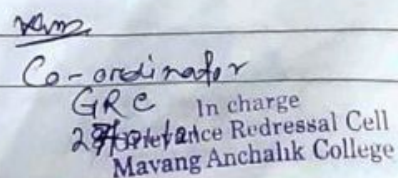 Co-ordinator
GRC
In charge
Grievance Redressal Cell
Mayang Anchalik College